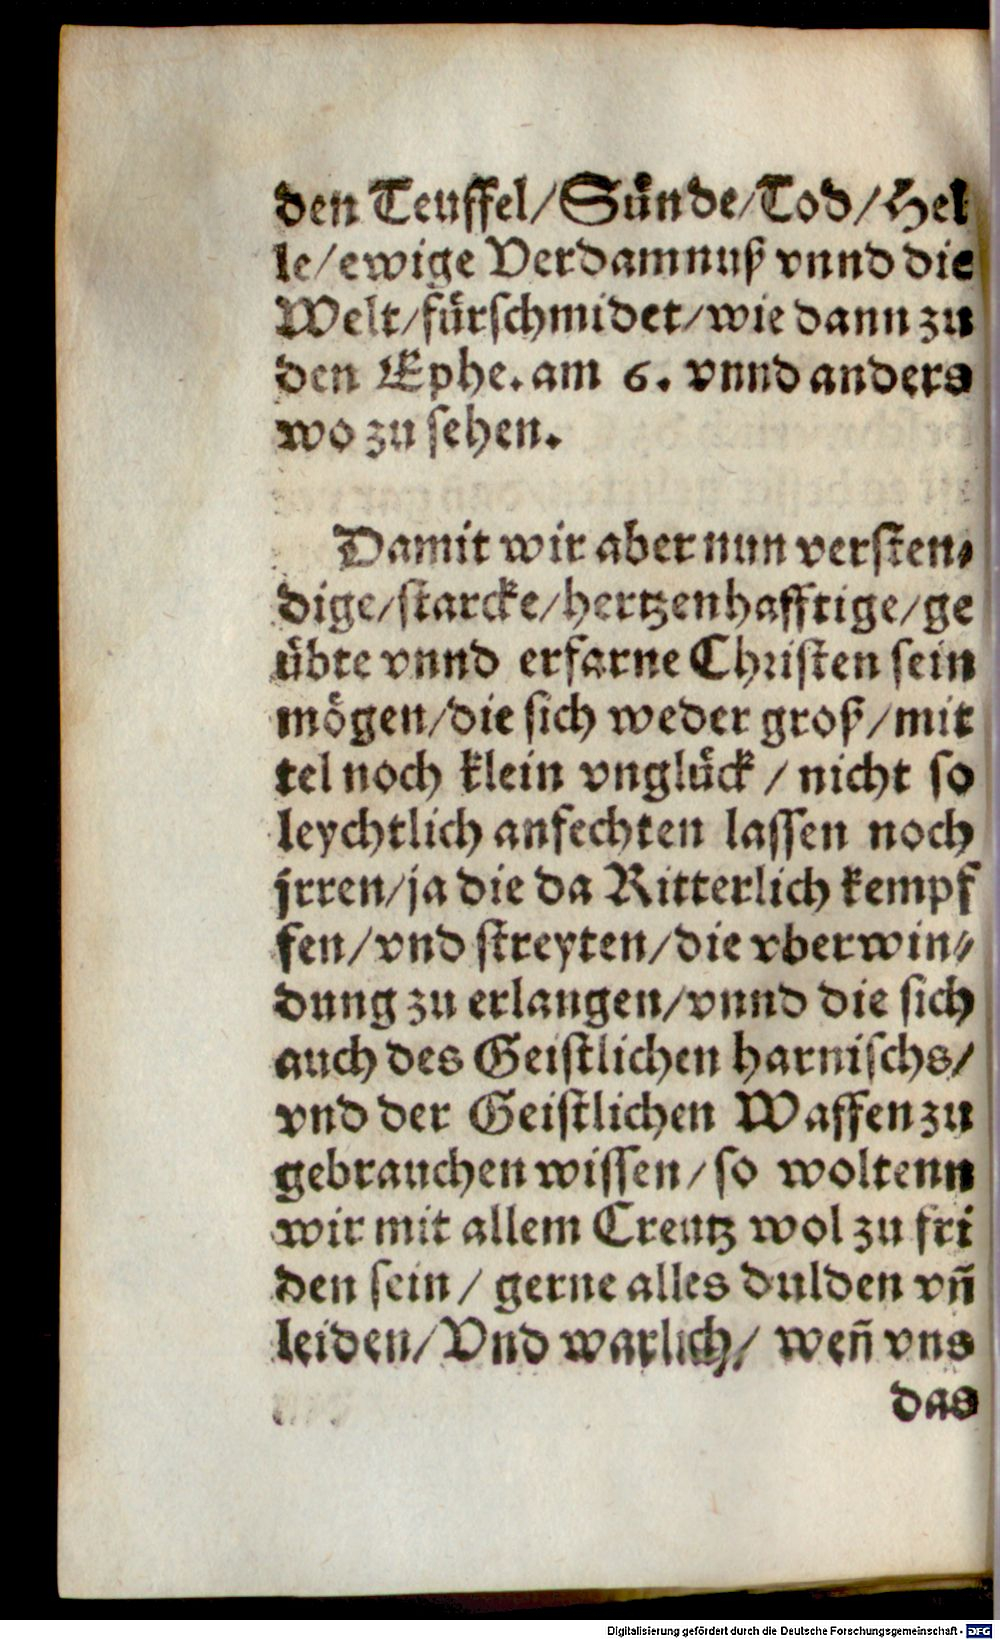 den Teuffel/Sünde/Tod/Hel
le/ewige Verdamnuß vnnd die
Welt/fürschmidet/wie dann zu
den Ephe. am 6. vnnd anders
wo zu sehen.
Damit wir aber nun versten⸗
dige/starcke/hertzenhafftige/ge
übte vnnd erfarne Christen sein
mögen/die sich weder groß/mit
tel noch klein vnglück / nicht so
leychtlich anfechten lassen noch
jrren/ja die da Ritterlich kempf
fen/vnd streyten/die vberwin⸗
dung zu erlangen/vnnd die sich
auch des Geistlichen harnischs/
vnd der Geistlichen Waffen zu
gebrauchen wissen/so woltenn
wir mit allem Creutz wol zu fri
den sein/ gerne alles dulden vñ
leiden/Vnd warlich/ weñ vns
das
Digitalisierung gefördert durch die Deutsche Forschungsgemeinschaft - DFG